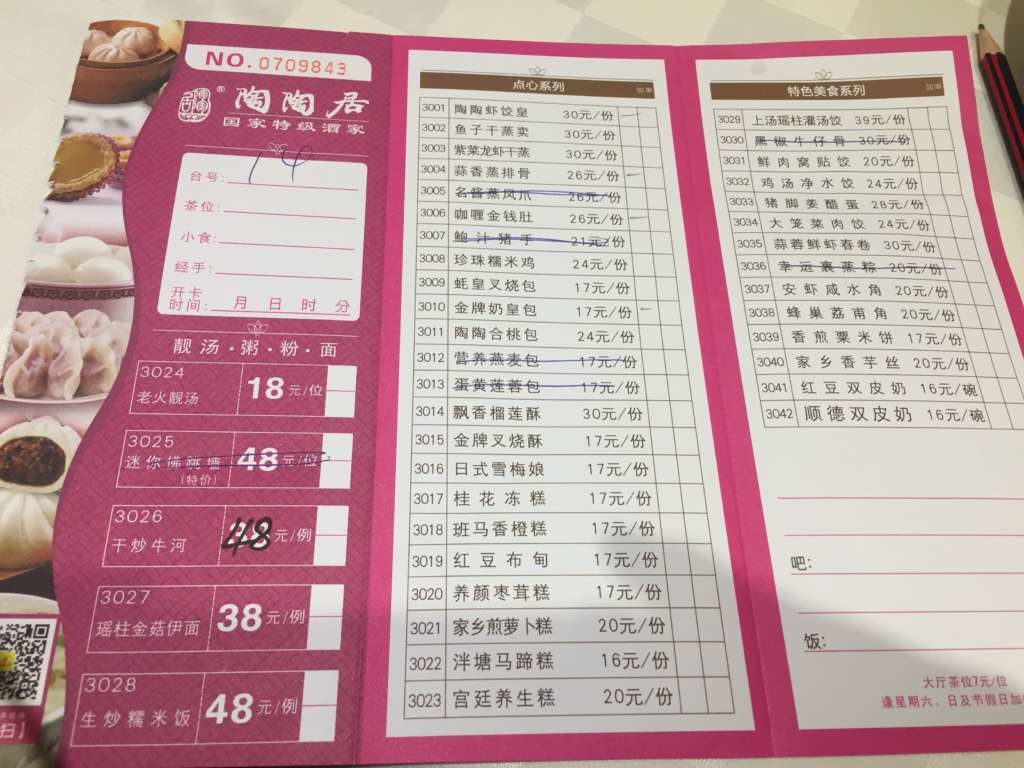 NO. 0709843
陶陶居®
国家特级酒家
台号: 14
茶位:
小食:
经手:
开卡
时间: 月 日 时 分
靓汤·粥·粉·面
3024
老火靓汤 18元/位
3025
迷你佛跳墙 48元/位
(特价)
3026
干炒牛河 48元/例
3027
瑶柱金菇伊面 38元/例
3028
生炒糯米饭 48元/例
扫
点心系列 加单
3001 陶陶虾饺皇 30元/份
3002 鱼子干蒸卖 30元/份
3003 紫菜龙虾干蒸 30元/份
3004 蒜香蒸排骨 26元/份
3005 名酱蒸凤爪 26元/份
3006 咖喱金钱肚 26元/份
3007 鲍汁猪手 21元/份
3008 珍珠糯米鸡 24元/份
3009 蚝皇叉烧包 17元/份
3010 金牌奶皇包 17元/份
3011 陶陶合桃包 24元/份
3012 营养燕麦包 17元/份
3013 蛋黄莲蓉包 17元/份
3014 飘香榴莲酥 30元/份
3015 金牌叉烧酥 17元/份
3016 日式雪梅娘 17元/份
3017 桂花冻糕 17元/份
3018 班马香橙糕 17元/份
3019 红豆布甸 17元/份
3020 养颜枣茸糕 17元/份
3021 家乡煎萝卜糕 20元/份
3022 泮塘马蹄糕 16元/份
3023 宫廷养生糕 20元/份
特色美食系列 加单
3029 上汤瑶柱灌汤饺 39元/份
3030 黑椒牛仔骨 30元/份
3031 鲜肉窝贴饺 20元/份
3032 鸡汤净水饺 24元/份
3033 猪脚姜醋蛋 28元/份
3034 大笼菜肉饺 24元/份
3035 蒜蓉鲜虾春卷 30元/份
3036 幸运裹蒸粽 20元/份
3037 安虾咸水角 20元/份
3038 蜂巢荔甫角 20元/份
3039 香煎粟米饼 17元/份
3040 家乡香芋丝 20元/份
3041 红豆双皮奶 16元/碗
3042 顺德双皮奶 16元/碗
吧:
饭:
大厅茶位7元/位
逢星期六、日及节假日加